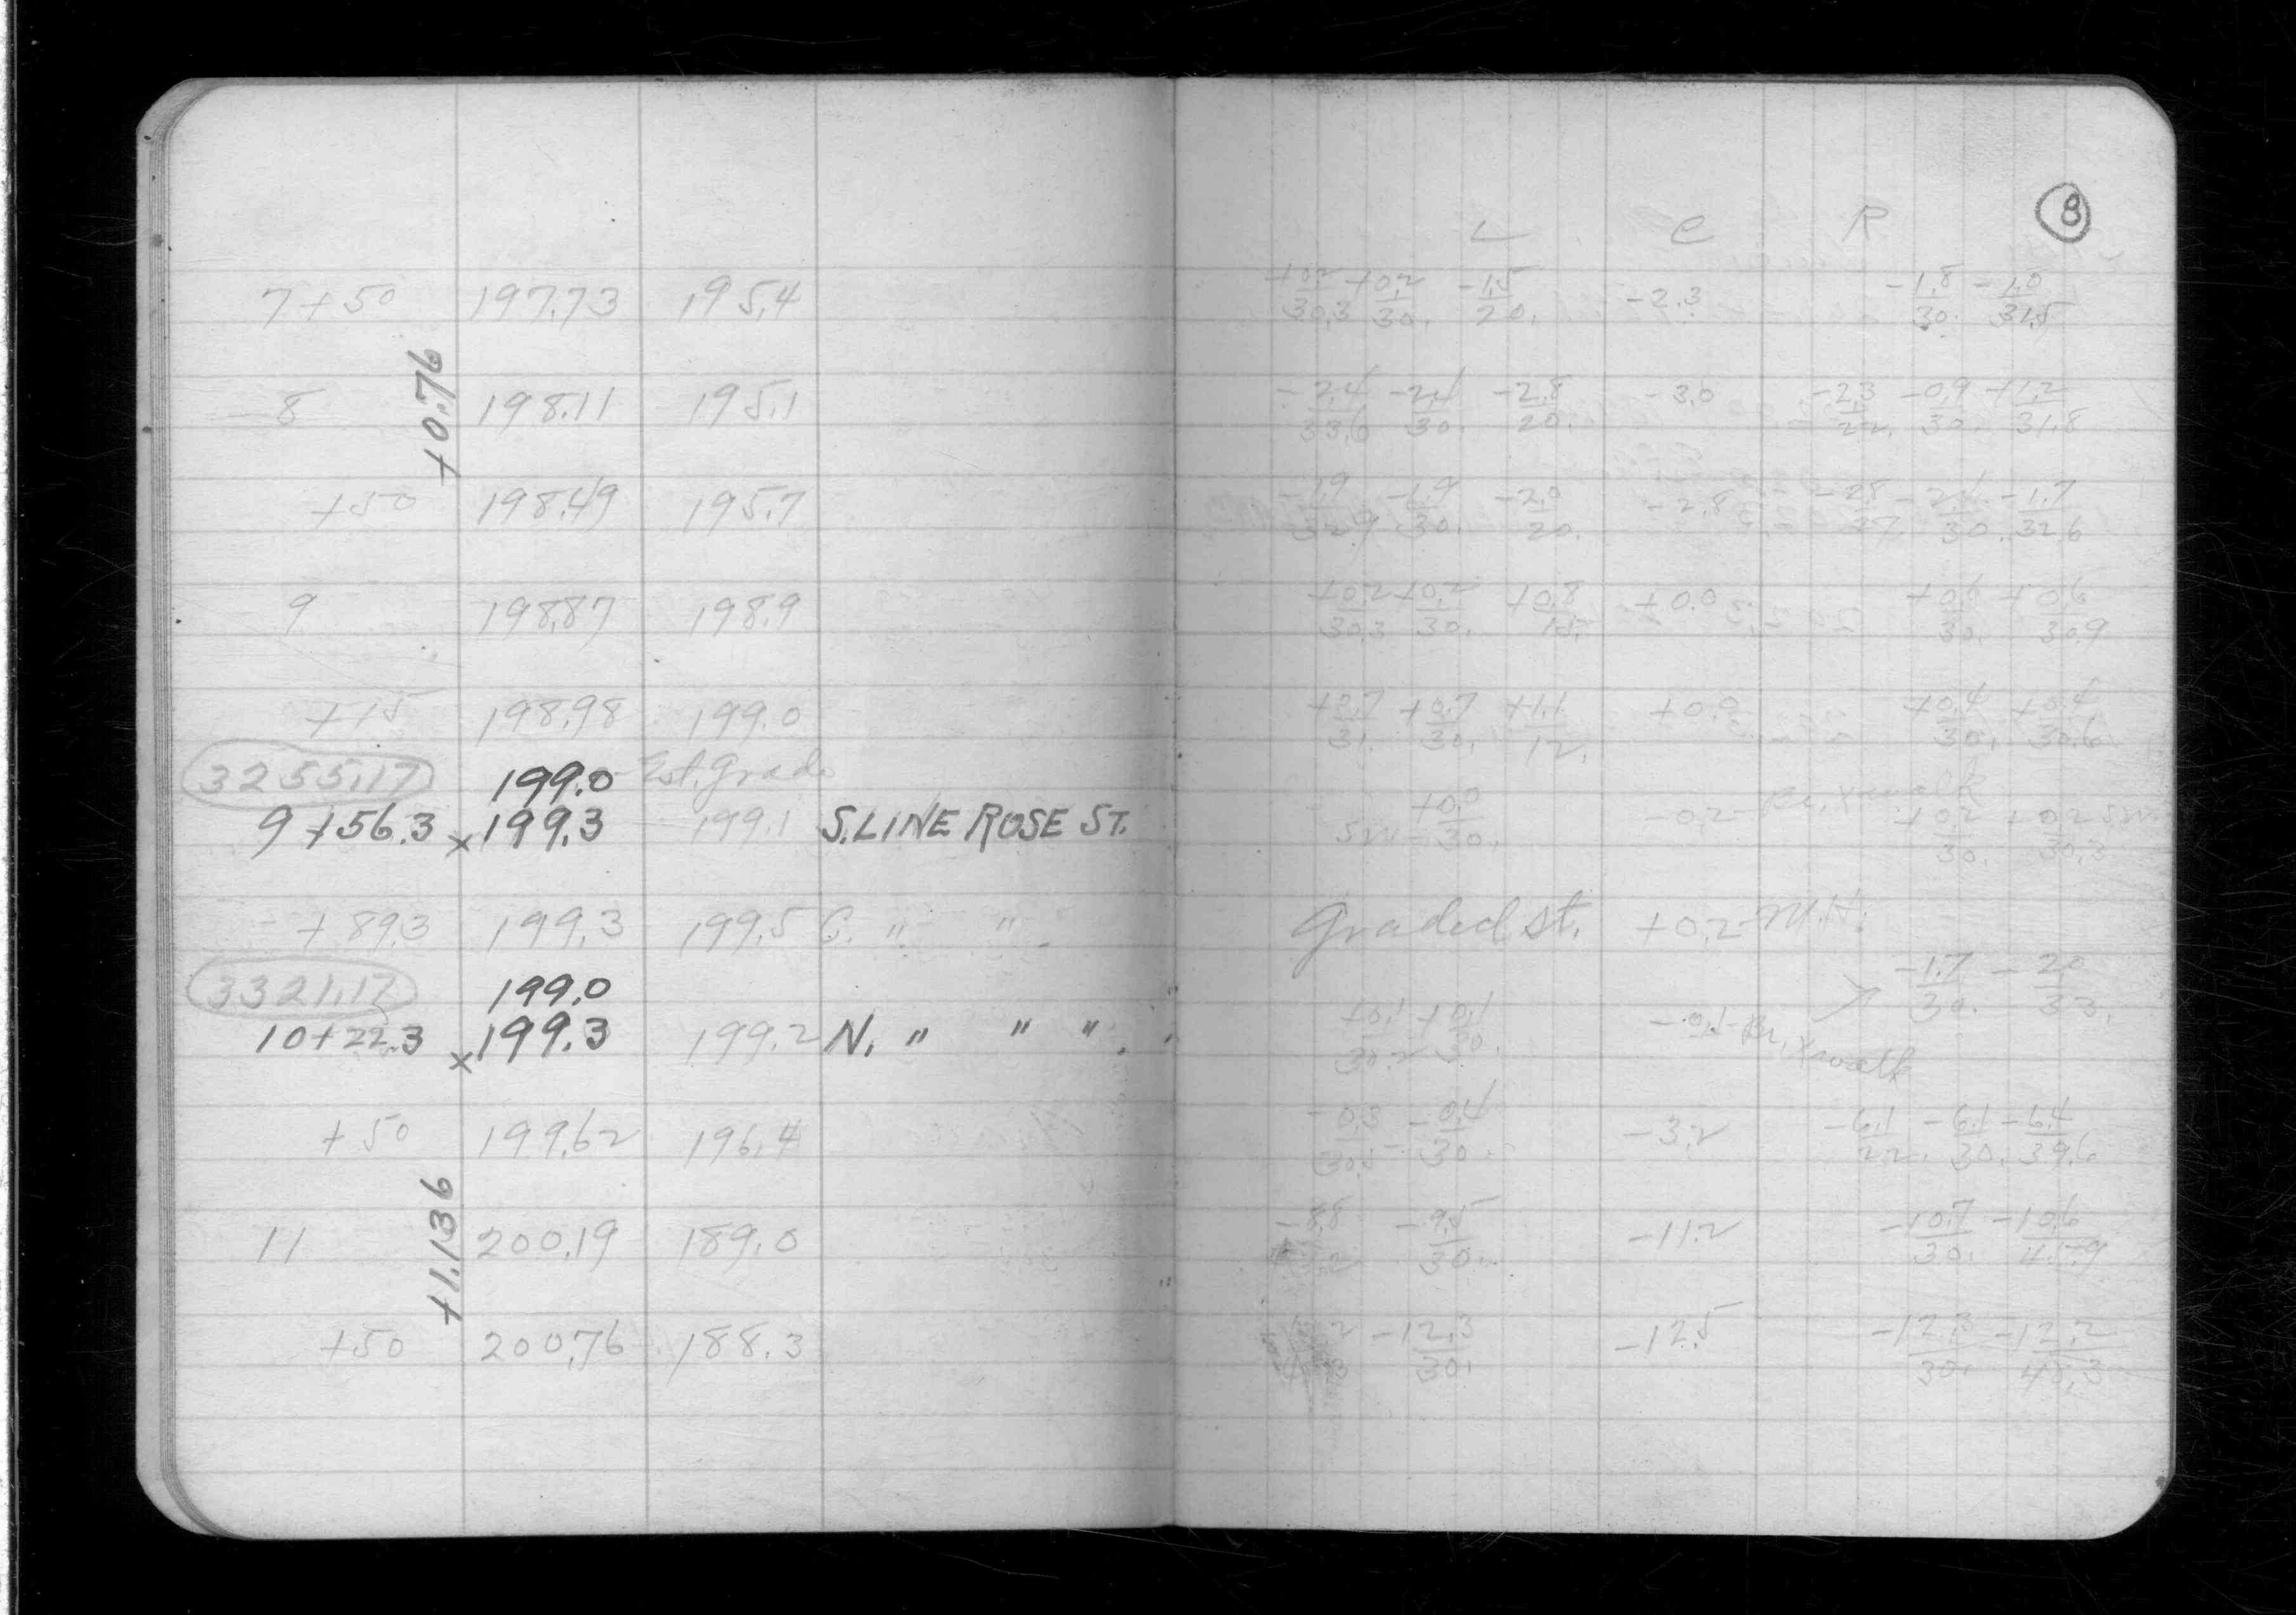 8
L C R
7+50 197.73 195.4 +0.2/30.3 +0.2/30. -1.5/20. -2.3 -1.8/30. -1.0/31.5
+0.76
8 198.11 195.1 -2.4/33.6 -2.4/30. -2.8/20. -3.0 -2.3/22. -0.9/30. +1.2/31.8
+50 198.49 195.7 -1.9/32.9 -1.9/30. -2.0/20. -2.8 -2.8/27. -2.1/30. -1.7/32.6
9 198.87 198.9 +0.2/30.3 +0.2/30. +0.8/15. +0.0 +0.6/30. +0.6/30.9
+15 198.98 199.0 +0.7/31. +0.7/30. +1.1/12. +0.0 +0.4/30. +0.4/30.6
3255.17 199.0 Est. Grade
9+56.3 x 199.3 199.1 S. LINE ROSE ST. +0.0/30. -0.2 - Br. xwalk +0.2/30. +0.2/30.3
+89.3 199.3 199.5 C. " " . Graded St. +0.2 - M.H.
3321.17 199.0 -1.7/30. -2.0/33.
10+22.3 x 199.3 199.2 N. " " " . +0.1/30.2 +0.1/30. -0.1 - Br. xwalk
+50 199.62 196.4 -0.3/30.5 -0.4/30. -3.2 -6.1/22. -6.1/30. -6.4/39.6
+1.136
11 200.19 189.0 -8.8 -9.5/30. -11.2 -10.7/30. -10.6/45.9
+50 200.76 188.3 -12.3/30. -12.5 -12.3/30. -12.2/40.3